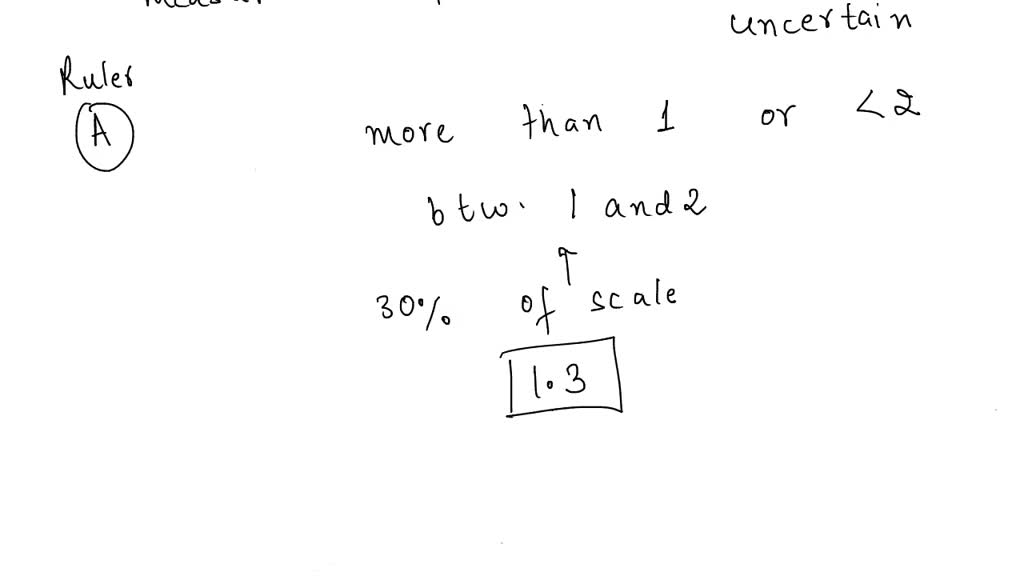 uncertain
Ruler
A
more than 1 or <2
btw. 1 and 2
↑
30% of scale
1.3